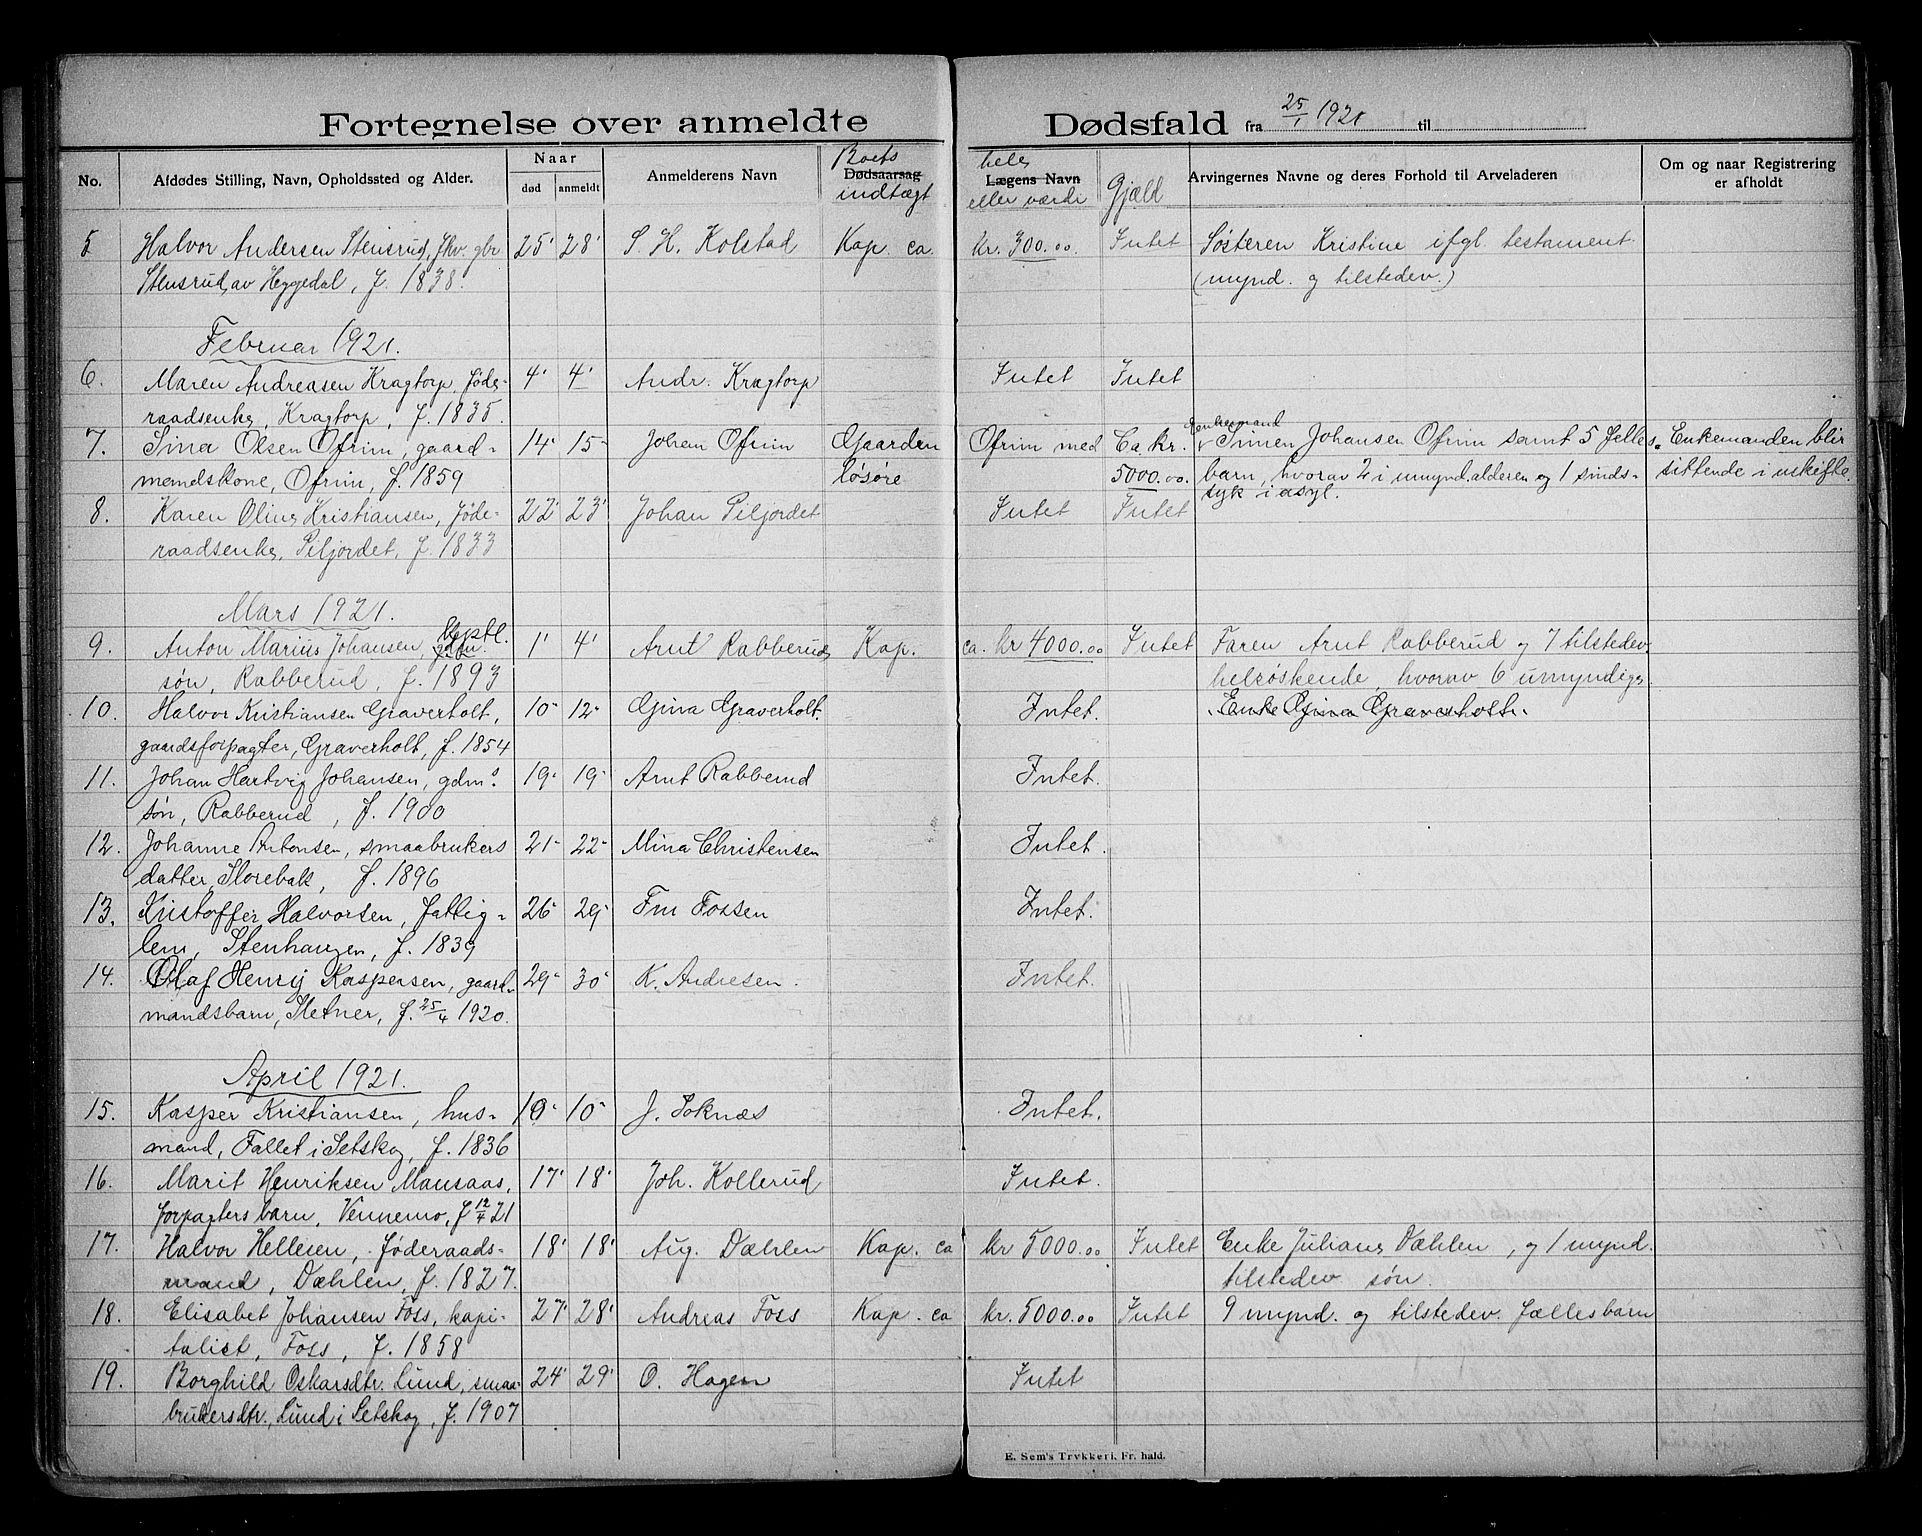 Fortegnelse over anmeldte Dødsfald fra 25/1 1921 til
No. Afdødes Stilling, Navn, Opholdssted og Alder. Naar død anmeldt Anmelderens Navn Dødsaarsag Boets indtægt Lægens Navn eller værdi Gjæld Arvingernes Navne og deres Forhold til Arveladeren Om og naar Registrering er afholdt
5 Halvor Andersen Stensrud, fhv. gbr 25' 28' S. H. Kolstad Kap. ca. kr. 300.00 Intet Søsteren Kristine ifgl. testament
Stensrud, av Heggedal, f. 1838. (mynd. og tilstedev.)
Februar 1921.
6. Maren Andreasen Kragtorp, føde- 4' 4' Andr. Kragtorp Intet Intet
raadsenke, Kragtorp, f. 1835. Enkemand
7. Sina Olsen Ofrim, gaard- 14' 15- Johan Ofrim Gaarden Ofrim med Ca. kr. Simen Johansen Ofrim samt 5 felles- Enkemanden blir
mandskone, Ofrim, f. 1859 løsøre 5000.00. barn, hvorav 2 i umynd. alderen og 1 sinds- sittende i uskifte.
syk i asyl.
8. Karen Oline Kristiansen, føde- 22' 23' Johan Piljordet Intet Intet
raadsenke, Piljordet, f. 1833
Mars 1921.
9. Anton Marius Johansen, 1' 4' Arnt Rabberud Kap. ca. kr 4000.00 Intet Faren Arnt Rabberud og 7 tilstedev.
søn, Rabberud, f. 1893 helsøskende, hvorav 6 umyndige.
10. Halvor Kristiansen Graverholt, 10- 12- Gina Graverholt. Intet. Enke Gina Graverholt.
gaardsforpagter, Graverholt, f. 1854
11. Johan Hartvig Johansen, gdms 19- 19- Arnt Rabberud Intet.
søn, Rabberud, f. 1900
12. Johanne Antonsen, smaabrukers 21- 22- Mina Christensen Intet.
datter, Storebak, f. 1896
13. Kristoffer Halvorsen, fattig- 26- 29- Fossen Intet.
lem, Stenhaugen, f. 1839
14. Olaf Henry Kaspersen, gaard- 29- 30- K. Andresen. Intet.
mandsbarn, Sletner, f. 25/4 1920.
April 1921.
15. Kasper Kristiansen, hus- 10- 10- J. Toknæs Intet.
mand, Fallet i Setskog, f. 1836
16. Marit Henriksen Mansaas, 17' 18' Joh. Kollerud Intet.
forpagters barn, Vennemo, f 12/4 21
17. Halvor Hellesen, føderaads- 18' 18' Aug. Dæhlen Kap. ca kr 5000.00 Intet Enke Juliane Dæhlen, og 1 mynd.
mand, Dæhlen, f. 1827. tilstedev søn.
18. Elisabet Johansen Foss, kapi- 27' 28' Andreas Foss Kap. ca kr. 5000.00 Intet 9 mynd. og tilstedev. fællesbarn
talist, Foss, f. 1858
19. Borghild Oskarsdtr. Lund, smaa- 24' 29' O. Hagen Intet
brukersdtr., Lund i Setskog, f. 1907
E. Sem's Trykkeri, Fr. hald.